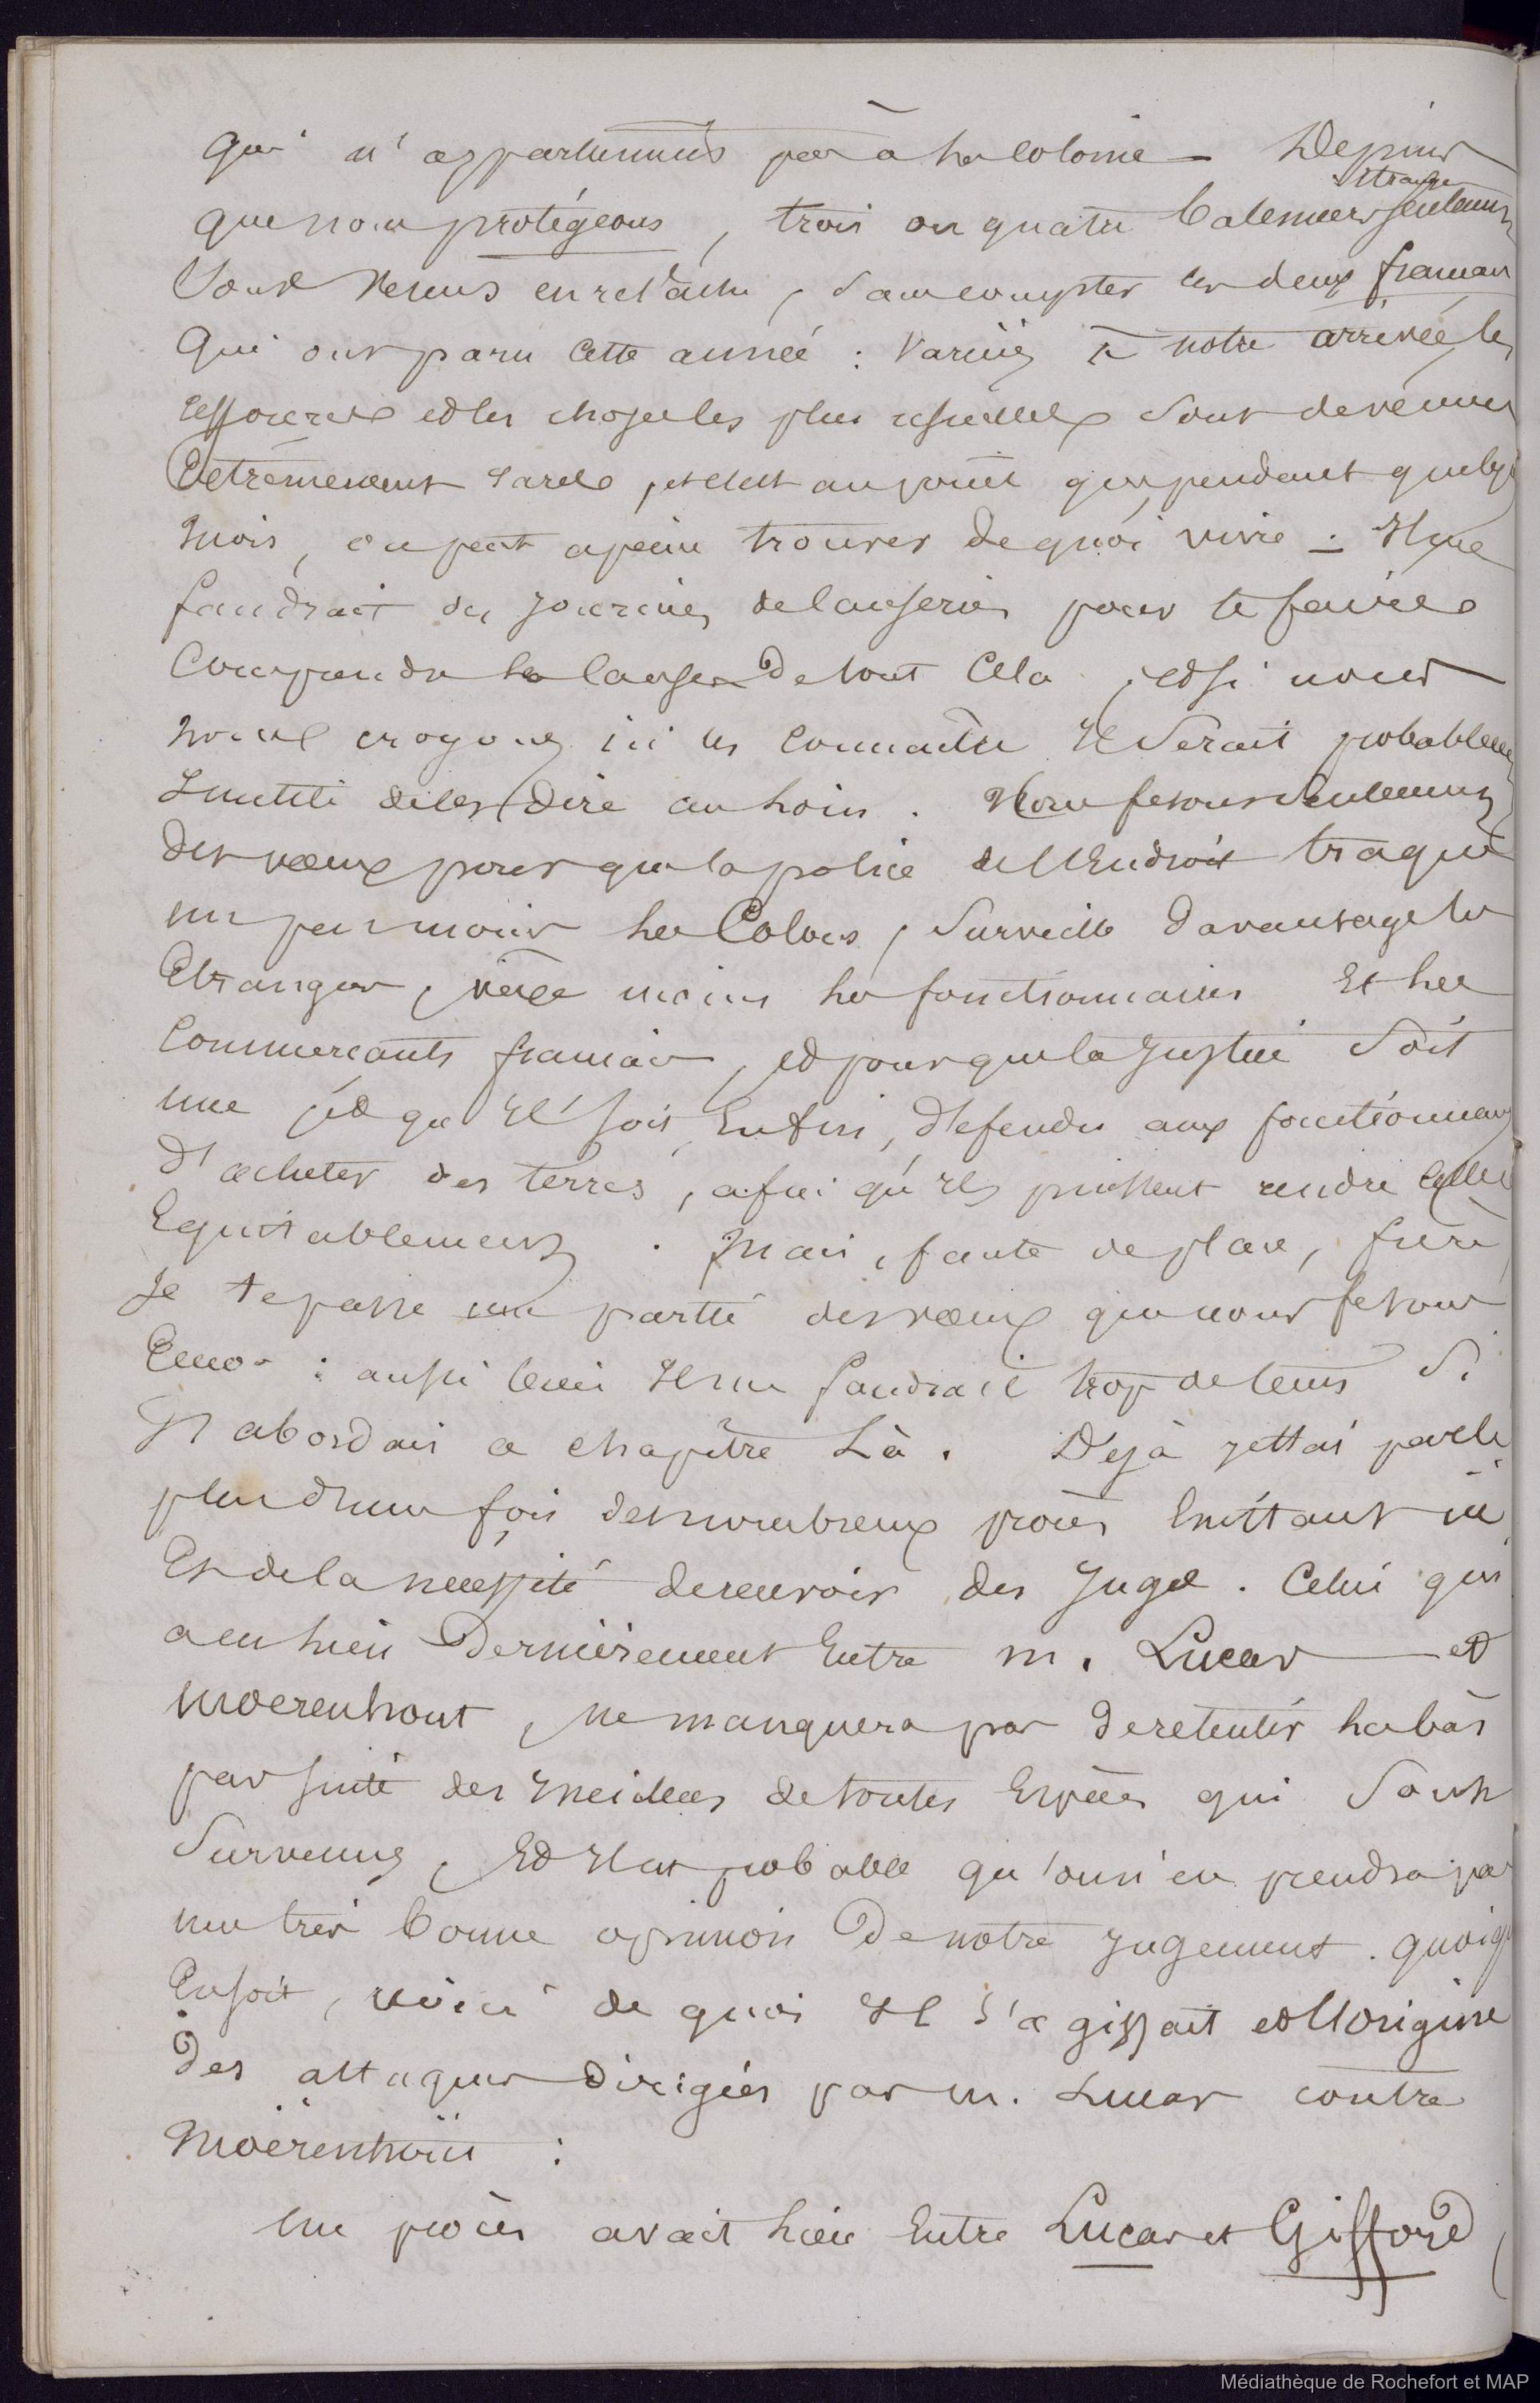 qui n'appartiennent pas à la colonie — Depuis
que nous protégeons, trois ou quatre baleiniers étrangers seulement
sont venus en relâche, sans compter les deux français
qui ont paru cette année : Variées à notre arrivée, les
ressources et les choses les plus usuelles sont devenues
Extrêmement rares, et c'est au point que, pendant quelques
mois, on peut apeine trouver de quoi vivre — Il me
faudrait des journées de causeries pour te faire
Comprendre les causes de tout cela, et si nous
nous croyons ici les connaître Il serait probablement
Inutile de les dire au loin. Nous fesons seulement
des vœux pour que la police de l'Endroit traque
un peu moins les Colons, surveille davantage les
Etrangers, vexe moins les fonctionnaires Et les
Commerçants français, et pour que la Justice soit
une et qu'Il soit, Enfin, défendu aux fonctionnaires
d'acheter des terres, afin qu'Ils puissent rendre celle
Equitablement. Mais, faute de place, frère,
Je te passe une partie des vœux que nous fesons
: aussi bien Il me faudrait trop de tems Si
J'abordais ce chapitre Là. Déjà je t'ai parlé
plus d'une fois des nombreux procès Existant ici
Et de la nécessité de recevoir des Juges. Celui qui
a eu lieu Dernièrement Entre M. Lucas et
Moerenhout, ne manquera pas de retentir la bas
par suite des Incidens de toutes Espèces qui sont
survenus, Et Il est probable qu'on n'en prendra pas
une très bonne opinion de notre Jugement. quoiqu'il
En soit, voici de quoi Il s'agissait et l'origine
des attaques dirigées par M. Lucas contre
Moërenhout :
Un procès avait lieu Entre Lucas et Gifford,
Médiathèque de Rochefort et MAP